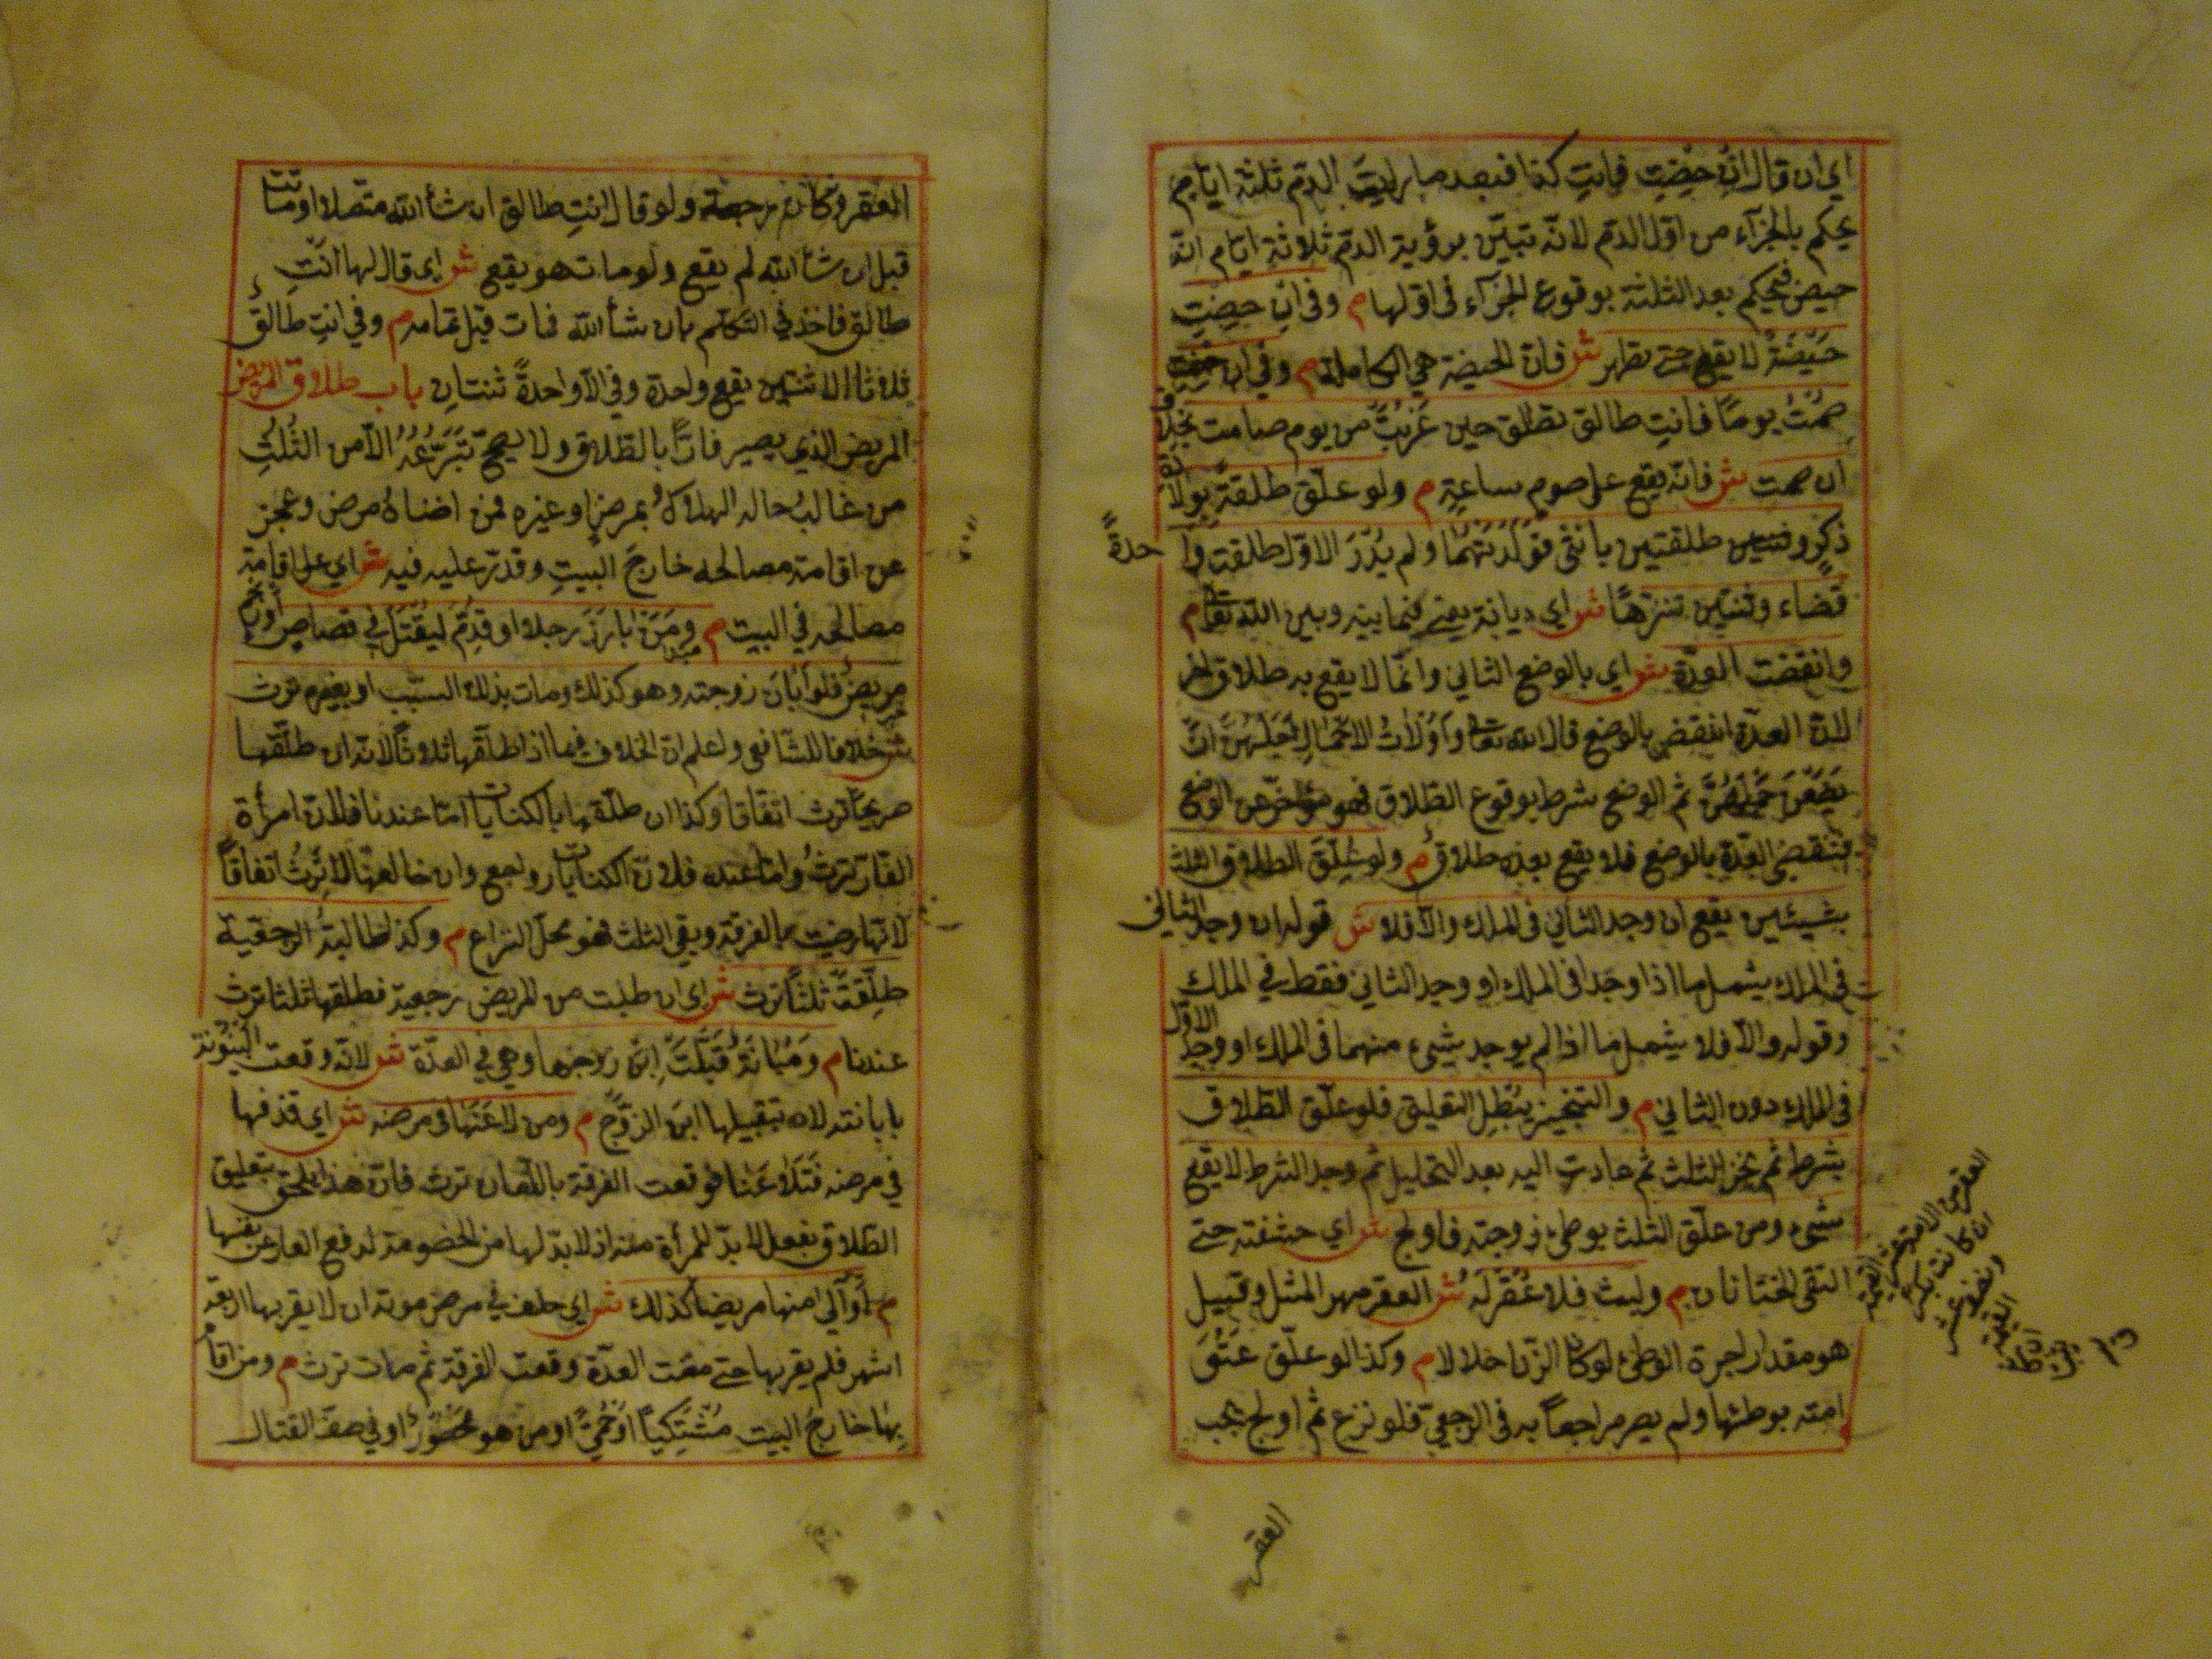 اي ان قال ان حِضْتِ فانتِ كذا فبعد ما رايت الدم ثلثة ايام
يحكم بالجزآء من اوّل الدّم لانّه تبيّن برؤية الدّم ثلاثة ايّام انّه
حيض فيحكم بعد الثلثة بوقوع الجزآء في اوّلها م وفي ان حِضْتِ
حَيْضَةً لا يقع حتى تطهر ش فانّ الحيضة هي الكاملة م وفي ان
صمْتُ يومًا فانتِ طالق تطلق حين غَرَبَتْ من يوم صامت بخلاف
ان صمت ش فانّه يقع على صوم ساعةٍ م ولو علّق طلقةً بولادة
ذكرٍ وطلقتين بانثى فولدتهما ولم يُدْرَ الاوّل طلقت واحدةً
قضاء وثنتين تنزّهًا ش اي ديانة يعني فيما بينه وبين الله تعالى م
وانقضت العدّة ش اي بالوضع الثاني وانّما لا يقع به طلاق اخر
لانّ العدّة تنقضي بالوضع قال الله تعالى وَاُولَاتُ الْاَحْمَالِ اَجَلُهُنَّ اَنْ
يَضَعْنَ حَمْلَهُنَّ ثم الوضع شرط بوقوع الطّلاق فهو مؤخّر عن الوضع
فتنقضي العدّة بالوضع فلا يقع بعده طلاق م ولو عُلّقَ الطلاق الثلث
بشيئين يقع ان وجد الثاني في الملك والّا فلا ش قوله ان وجد الثاني
في الملك يشمل ما اذا وجدا في الملك او وجد الثاني فقط في الملك
وقوله والّا فلا يشمل ما اذا لم يوجد شيء منهما في الملك او وجد الاوّل
في الملك دون الثاني م والتنجيز يُبْطِل التعليق فلو علّق الطّلاق
بشرط ثم نجز الثلث ثم عادت اليه بعد التحليل ثم وجد الشرط لا يقع
شيء ومن علّق الثلث بوطئ زوجته فاولج ش اي حشفته حتى
التقى الختانان م ولبث فلا عُقْرَ له ش العقر مهر المثل وقيل
هو مقدار اجرة الوطئ لو كان الزنا حلالا م وكذا لو علّق عِتْقَ
امته بوطئها ولم يصر مراجعاً به في الرجعيّ فلو نزع ثم اولج يجب
العقر
العقر وكان رجعة ولو قال انتِ طالق ان شاء الله متّصلا او ماتت
قبل ان شاء الله لم يقع ولو مات هو يقع ش اي قال لها انتِ
طالق فاخذ في التكلّم بان شاء الله فمات قبل تمامه م وفي انتِ طالق
ثلاثا الا ثنتين يقع واحدة وفي الّا واحدةً ثنتانِ باب طلاق المريض
المريض الذي يصير فارّاً بالطّلاق ولا يصحّ تَبَرُّعُهُ الّا من الثُّلُثِ
من غالبُ حاله الهلاكُ بمرضٍ او غيره فمن اضناهُ مرض وعجز
عن اقامة مصالحه خارجَ البيتِ وقدر عليه فيه ش اي على اقامة
مصالحه في البيت م ومَنْ بارَزَ رجلا او قُدِّمَ ليُقْتَلَ في قصاص او رجم
مريضٌ فلو أبان زوجته وهو كذلك ومات بذلك السبب او بغيره ترث
ش خلافا للشّافعي واعلم انّ الخلاف فيما اذا طلّقها ثلاثاً لانّه ان طلّقها
صريحا ترث اتفاقا وكذا ان طلّقها بالكنايات امّا عندنا فلانّه امرأة
الفارّ ترثُ وامّا عنده فلانّ الكنايات رواجع وان خالعها لا تَرِثُ اتفاقاً
لانّها رضيت بالفرقة وبقي الثلث فهو محلّ النزاع م وكذا طالبةُ الرّجعيّة
طُلّقتْ ثلثاً ترث ش اي ان طلبت من المريض رجعية فطلقها ثلثا ترث
عندنا م ومُبانةٌ قَبَّلَتْ ابنَ زوجها وهي في العدّة ش لانّه وقعت البينونة
بابانته لا بتقبيلها ابن الزّوج م ومن لاعَنَها في مرضه ش اي قذفها
في مرضه فتلاعَنا فوقعت الفرقة باللّعان ترث فانّ هذا يلحق بتعليق
الطّلاق بفعل لا بدّ للمرأة منه اذ لا بدّ لها من الخصومة لدفع العار عن نفسها
م أو آلى منها مريضا كذلك ش اي حلف في مرض موته ان لا يقربها اربعة
اشهر فلم يقربها حتى مضت العدّة وقعت الفرقة ثم مات ترث م ومن اقام
بها خارج البيت مُشْتَكِياً او حُمَّ او من هو محصُورٌ او في صفّ القتال